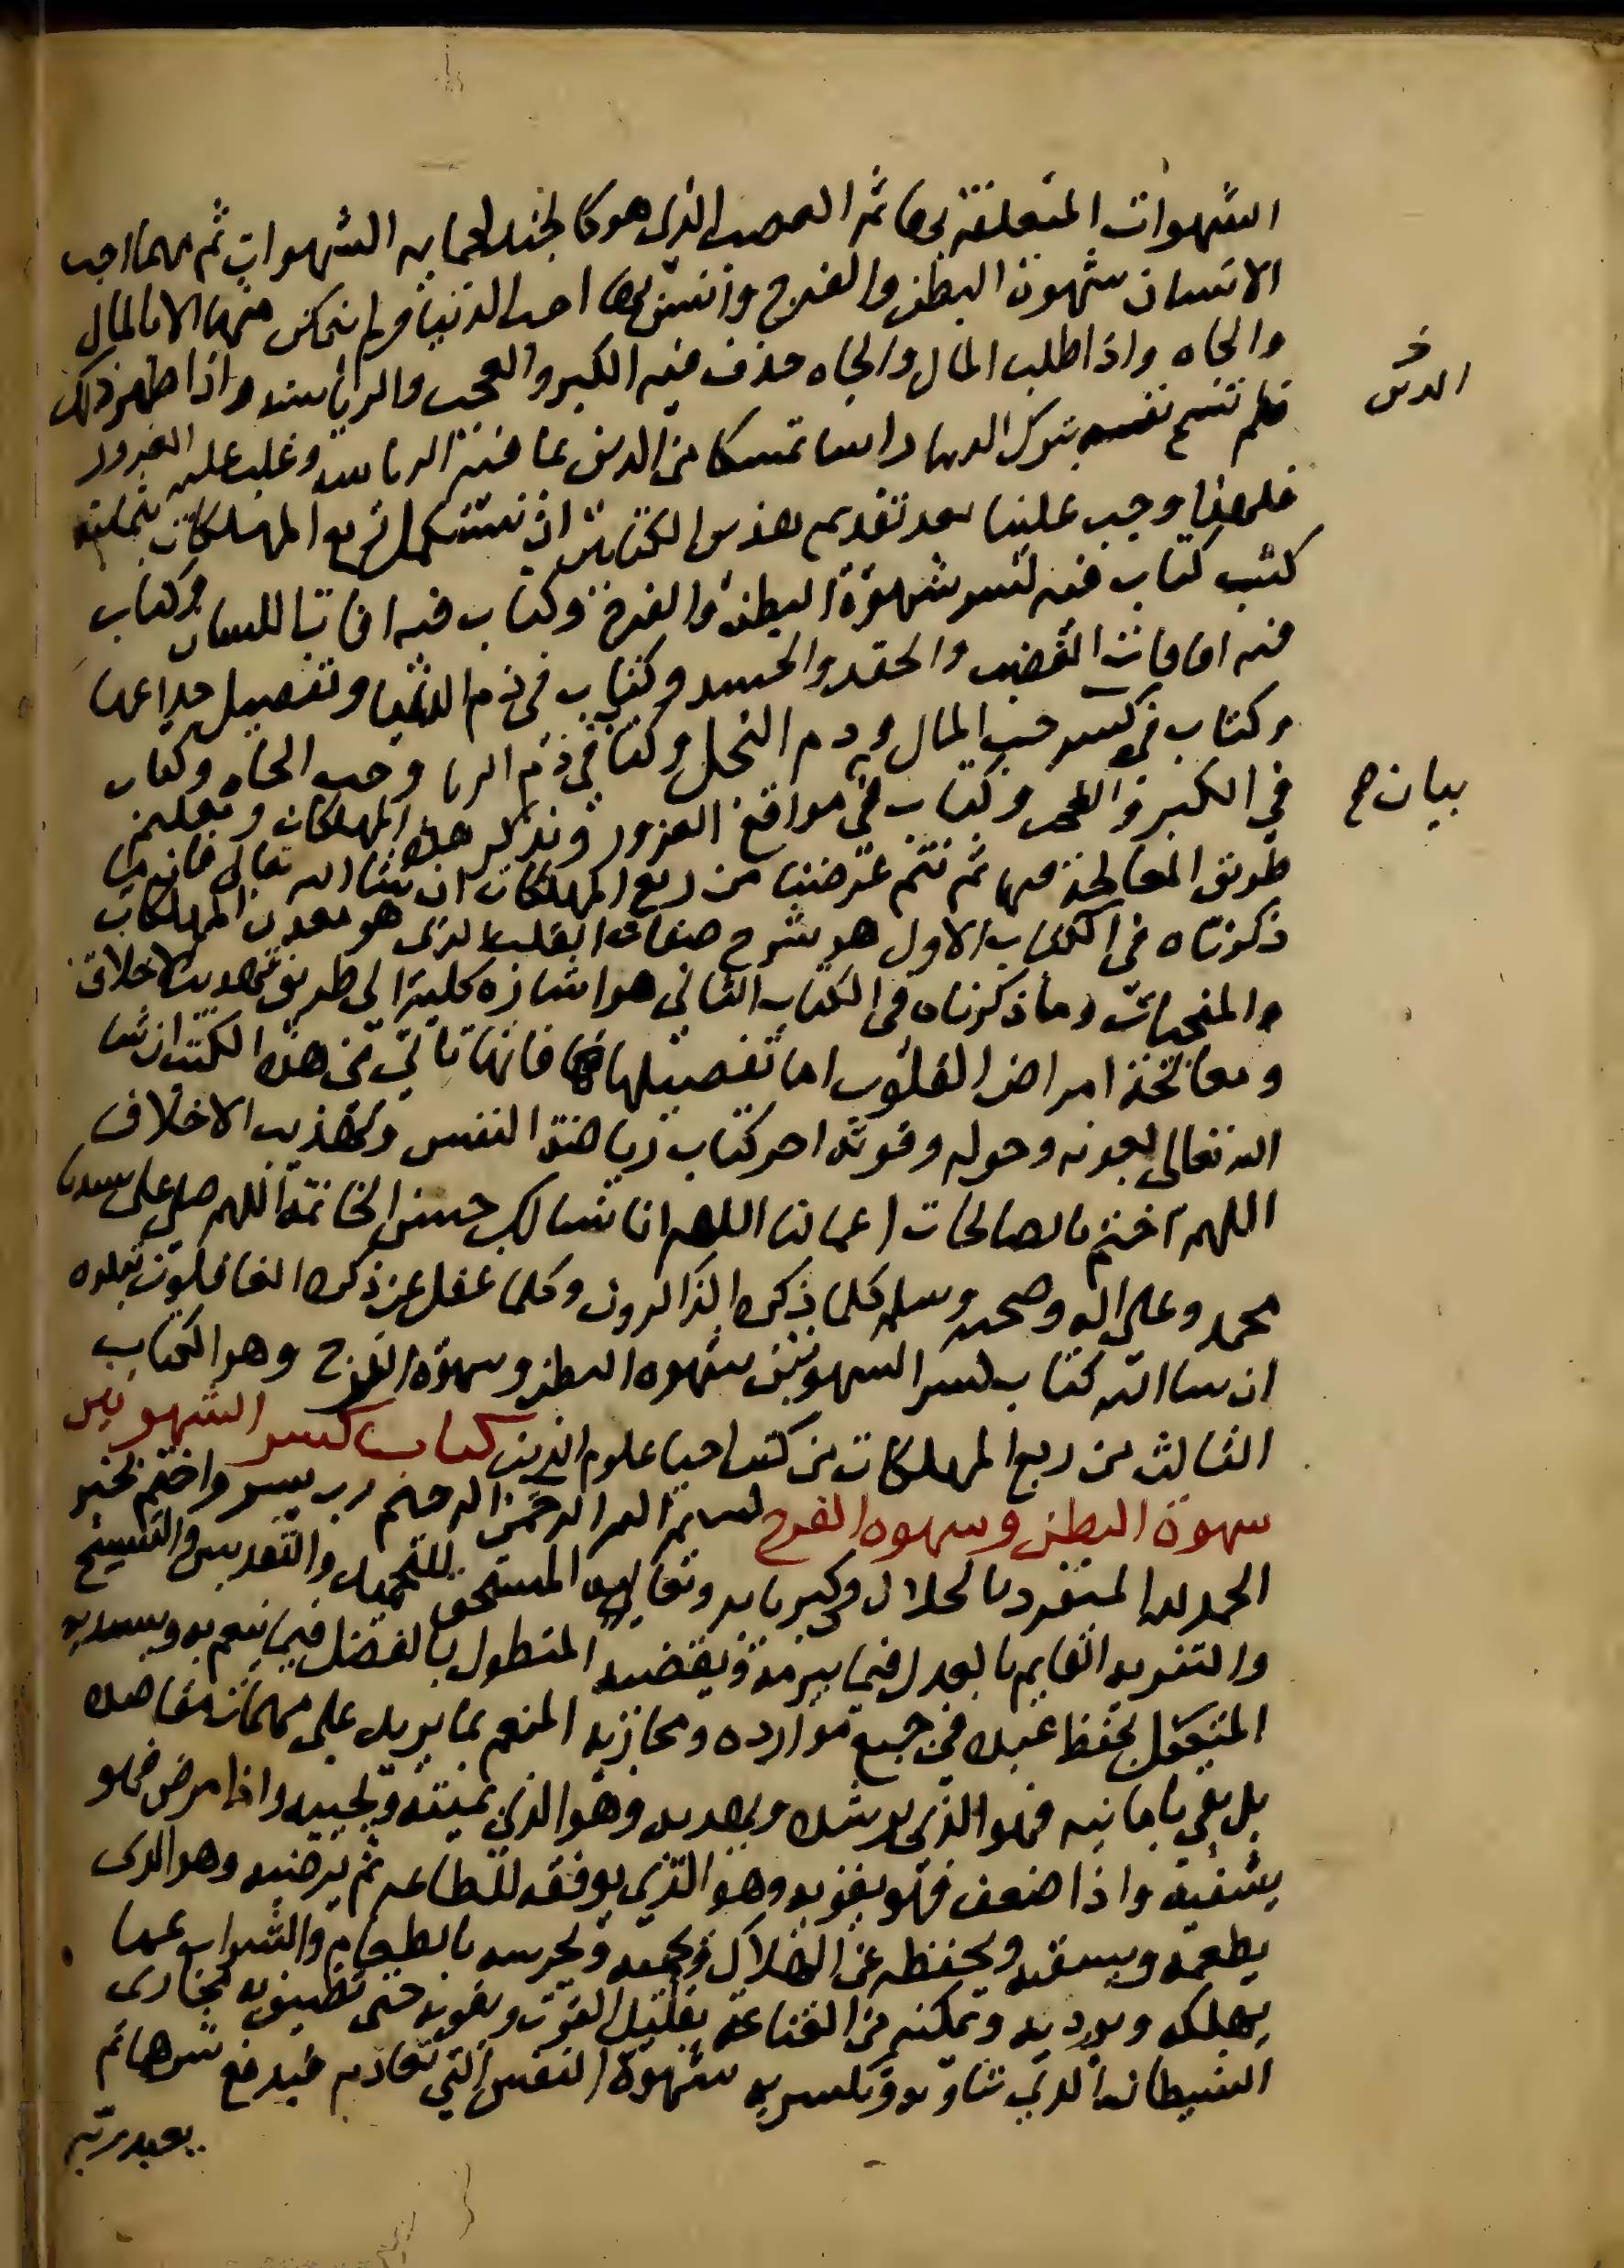 الشهوات المتعلقة بها ثم الغضب الذي هو كالجند لحماية الشهوات ثم مهما احب
الانسان شهوة البطن والفرج وانس بها احب الدنيا ولم يتمكن منها الا بالمال
والجاه واذا طلب المال والجاه حدث فيه الكبر والعجب والرياسة واذا ظهر ذلك
فلم تسمح نفسه بترك الدنيا راسا تمسكا من الدين بما فيه الرياسة وغلب عليه الغرور
الدين
فلهذا وجب علينا بعد تقديم هذين الكتابين ان نستكمل ربع المهلكات بثمانية
كتب كتاب فيه كسر شهوة البطن والفرج وكتاب فيه افات اللسان وكتاب
فيه افات الغضب والحقد والحسد وكتاب في ذم الدنيا وتفصيل خداعها
وكتاب في كسر حب المال وذم البخل وكتاب في ذم الريا وحب الجاه وكتاب
في الكبر والعجب وكتاب في مواقع الغرور ونذكر هذه المهلكات وتعليم
بيان ح
طريق المعالجة منها ثم نتم غرضنا من ربع المهلكات ان شا الله تعالى فان ما
ذكرناه في الكتاب الاول هو شرح صفات القلب الذي هو معدن المهلكات
والمنجيات وما ذكرناه في الكتاب الثاني هو اشارة كلية الى طريق تهذيب الاخلاق
ومعالجة امراض القلوب اما تفصيلها فانها تاتي في هذه الكتب ان شا
الله تعالى بعونه وحوله وقوته اخر كتاب رياضة النفس وتهذيب الاخلاق
اللهم اختم بالصالحات اعمالنا اللهم انا نسالك حسن الخاتمة اللهم صل على سيدنا
محمد وعلى اله وصحبه وسلم كلما ذكره الذاكرون وكلما غفل عن ذكره الغافلون يتلوه
ان شا الله كتاب كسر الشهوتين شهوة البطن وشهوة الفرج وهو الكتاب
الثالث من ربع المهلكات من كتب احيا علوم الدين كتاب كسر الشهوتين
شهوة البطن وشهوة الفرج بسم الله الرحمن الرحيم رب يسر واختم بخير
الحمد لله المتفرد بالجلال وكبريايه وتعاليه المستحق للتحميد والتقديس والتسبيح
والتنزيه القايم بالعدل فيما يبرمه ويقضيه المتطول بالفضل فيما ينعم به ويسديه
المتكفل بحفظ عبده في جميع موارده ومجاريه المنعم بما يزيد على مهمات مقاصده
بل يفي بامانيه فهو الذي يرشده ويهديه وهو الذي يميته ويحييه واذا مرض فهو
يشفيه واذا ضعف فهو يقويه وهو الذي يوفقه للطاعة ثم يرضيه وهو الذي
يطعمه ويسقيه ويحفظه عن الهلاك ويحميه ويحرسه بالطعام والشراب عما
يهلكه ويرديه ويمكنه من القناعة بقليل القوت ويقويه حتى تضيق به مجاري
الشيطان الذي يناويه ويكسر به شهوة النفس التي تعاديه فيدفع شرها ثم
يعبد ربه